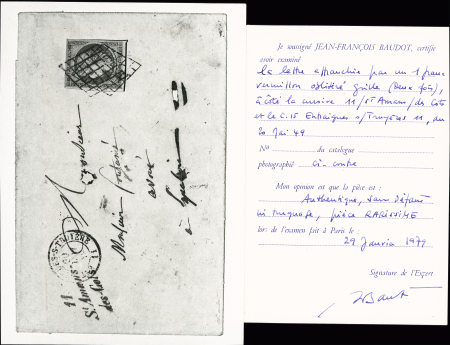 Monsieur
Monsieur
avoué
à
11
St Amans
des-Cots
11
Je soussigné JEAN-FRANÇOIS BAUDOT, certifie
avoir examiné
la lettre affranchie par un 1 franc
vermillon oblitéré grille (deux fois),
à côté la cursive 11/St Amans/des Cots
et le C.15 Entraigues s/Truyère 11, du
20 Mai 49
N° du catalogue
photographié ci-contre
Mon opinion est que la pièce est :
Authentique, sans défaut
ni truquage, pièce RARISSIME
lors de l'examen fait à Paris le :
29 Janvier 1979
Signature de l'Expert